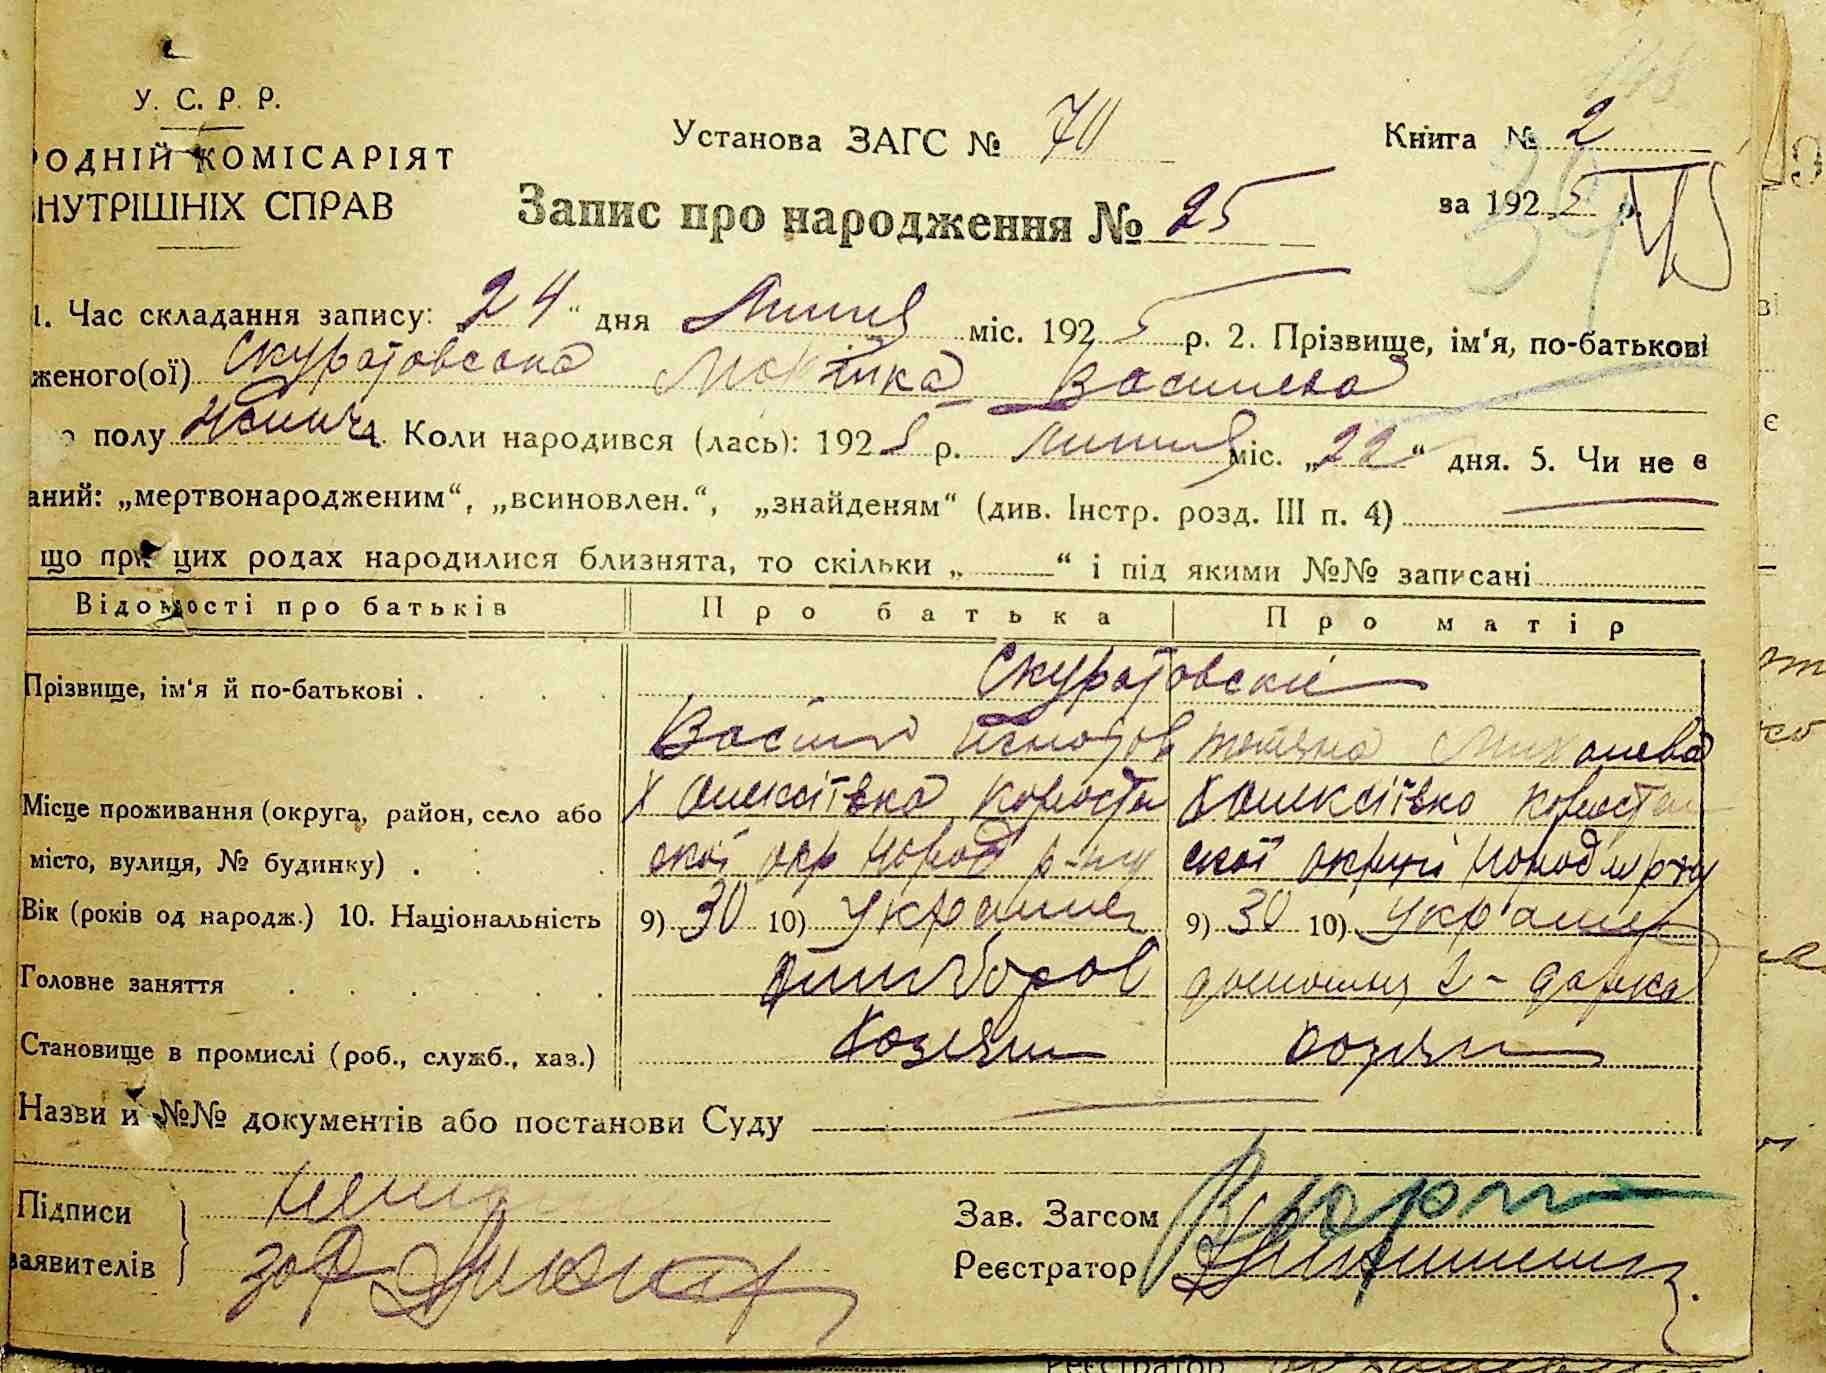 У. С. Р. Р.
РОДНІЙ КОМІСАРІЯТ
НУТРІШНІХ СПРАВ
Установа ЗАГС № 70
Книга № 2
Запис про народження № 25
за 1925 р.
1. Час складання запису: „24“ дня Липня міс. 1925 р. 2. Прізвище, ім‘я, по-батькові
женого(ої) Скуратовська Васильева
полу Жіноч. Коли народився (лась): 1925 р. Липня міс. „22“ дня. 5. Чи не є
аний: „мертвонародженим“, „всиновлен.“, „знайденям“ (див. Інстр. розд. III п. 4)
що при цих родах народилися близнята, то скільки „ “ і під якими №№ записані
Відомості про батьків Про батька Про матір
Прізвище, ім‘я й по-батькові . Скуратовскі
Василь Тетяна Михалева
Місце проживання (округа, район, село або Х Олексіївка Коросте Х Олексіївка Коростен
місто, вулиця, № будинку) . скої окр Народ р-ну скої округи Народ р-ну
Вік (років од народж.) 10. Національність 9) 30 10) Украинец 9) 30 10) Украин
Головне заняття хлибороб домашня г-дарка
Становище в промислі (роб., служб., хаз.) Хозяин хозяин
Назви й №№ документів або постанови Суду
Підписи
заявителів
Зав. Загсом
Реєстратор
Реєстратор